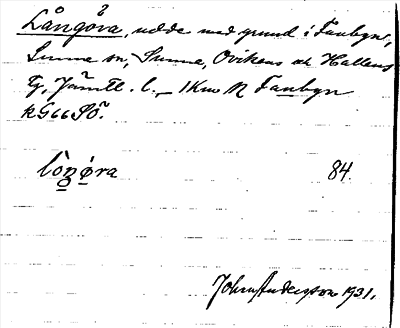 Långöra, udde med grund i Fanbyn,
Sunne sn, Sunne, Ovikens och Hallens
tg, Jämtl. l. – 1 Km N Fanbyn
k G66 SÖ.
lòŋøra 84.
John Anderson 1931.